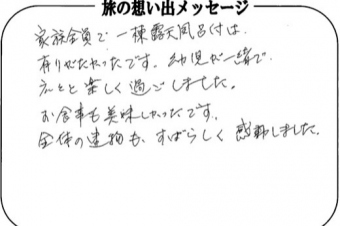 旅の想い出メッセージ
家族全員で一棟露天風呂付は、
有りがたかったです。幼児が一緒で
楽しく過ごしました。
お食事も美味しかったです。
全体の建物も、すばらしく感動しました。